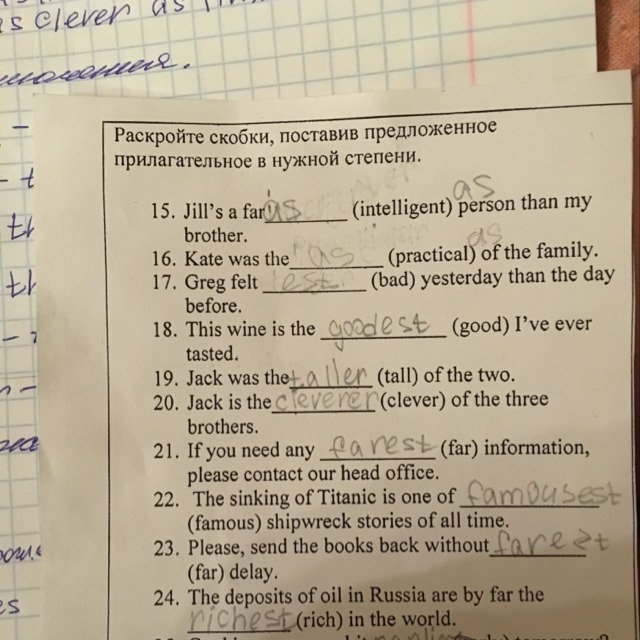 as clever as
–
Раскройте скобки, поставив предложенное
прилагательное в нужной степени.
as
15. Jill's a far as ________ (intelligent) person than my
brother.
as
16. Kate was the as ________ (practical) of the family.
17. Greg felt est ________ (bad) yesterday than the day
before.
18. This wine is the goodest (good) I've ever
tasted.
19. Jack was the taller (tall) of the two.
20. Jack is the cleverer (clever) of the three
brothers.
21. If you need any farest (far) information,
please contact our head office.
22. The sinking of Titanic is one of famousest
(famous) shipwreck stories of all time.
23. Please, send the books back without farest
(far) delay.
24. The deposits of oil in Russia are by far the
richest (rich) in the world.